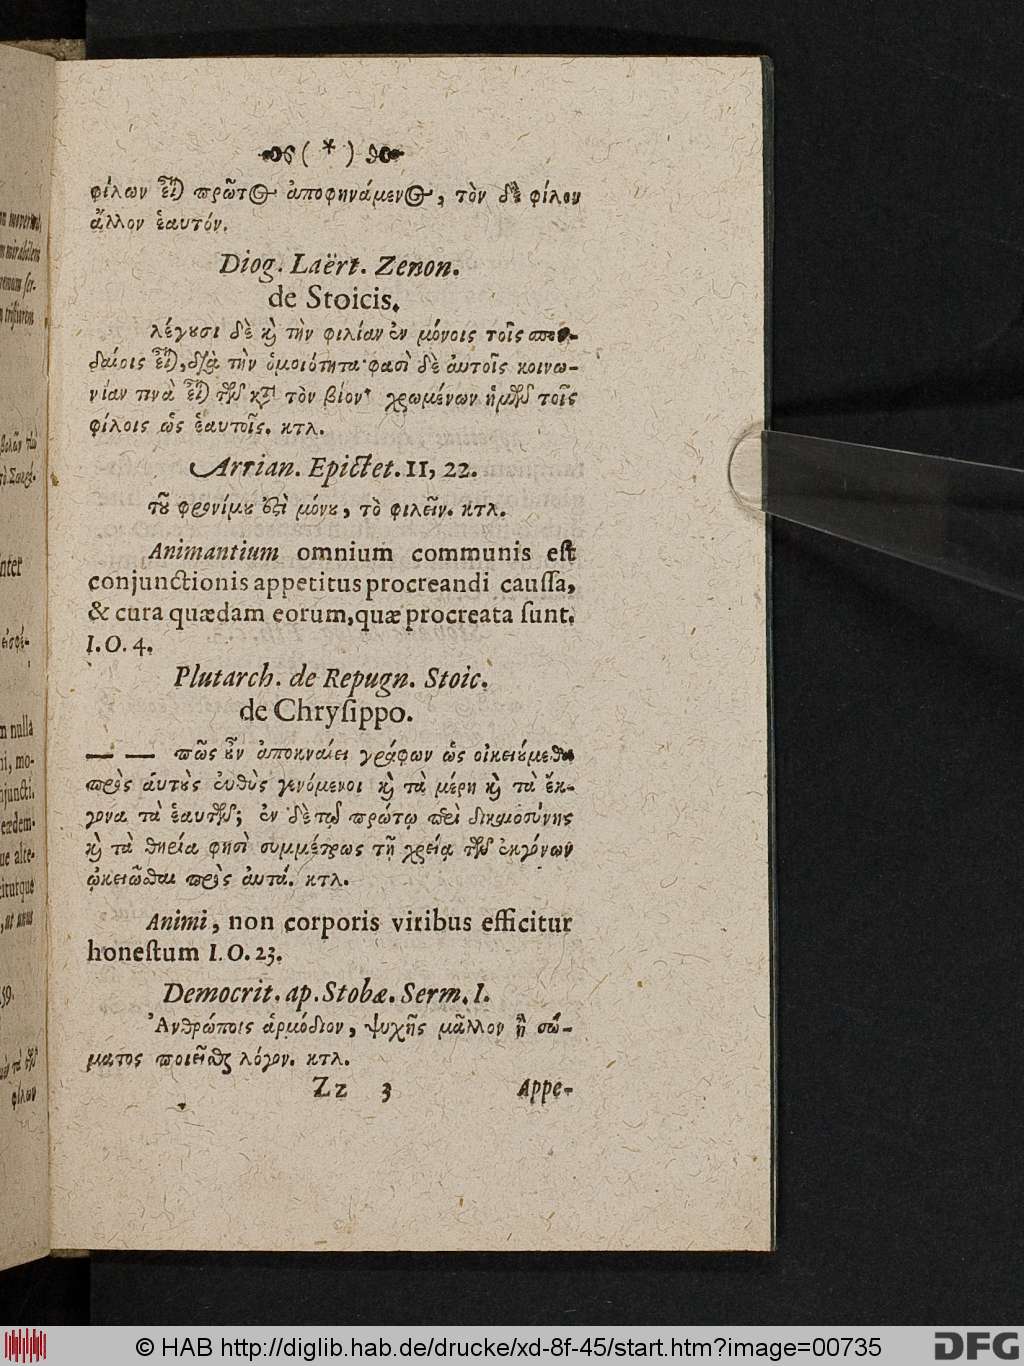 ( * )
φίλων εἶναι πρῶτος ἀποφηνάμενος, τὸν δὲ φίλον
ἄλλον ἑαυτόν.
Diog. Laërt. Zenon.
de Stoicis.
λέγουσι δὲ καὶ τὴν φιλίαν ἐν μόνοις τοῖς σπου-
δαίοις εἶναι, διὰ τὴν ὁμοιότητα· φασὶ δὲ ἀυτοῖς κοινω-
νίαν τινὰ εἶναι τῶν κατὰ τὸν βίον· χρωμένων ἡμῶν τοῖς
φίλοις ὡς ἑαυτοῖς. κτλ.
Arrian. Epictet. II, 22.
τοῦ φρονίμου ἐστὶ μόνου, τὸ φιλεῖν. κτλ.
Animantium omnium communis est
conjunctionis appetitus procreandi caussa,
& cura quædam eorum, quæ procreata sunt.
I. O. 4.
Plutarch. de Repugn. Stoic.
de Chrysippo.
— — πῶς οὖν ἀποκναίει γράφων ὡς οἰκειούμεθα
πρὸς ἁυτοὺς εὐθὺς γενόμενοι καὶ τὰ μέρη καὶ τὰ ἔκ-
γονα τὰ ἑαυτῶν; ἐν δὲ τῷ πρώτῳ περὶ δικαιοσύνης
καὶ τὰ θηρία φησὶ συμμέτρως τῇ χρείᾳ τῶν ἐκγόνων
ᾠκειῶσθαι πρὸς ἀυτά. κτλ.
Animi, non corporis viribus efficitur
honestum I. O. 23.
Democrit. ap. Stobæ. Serm. I.
Ἀνθρώποις ἁρμόδιον, ψυχῆς μᾶλλον ἢ σώ-
ματος ποιεῖσθαι λόγον. κτλ.
Zz 3 Appe-
© HAB http://diglib.hab.de/drucke/xd-8f-45/start.htm?image=00735
DFG